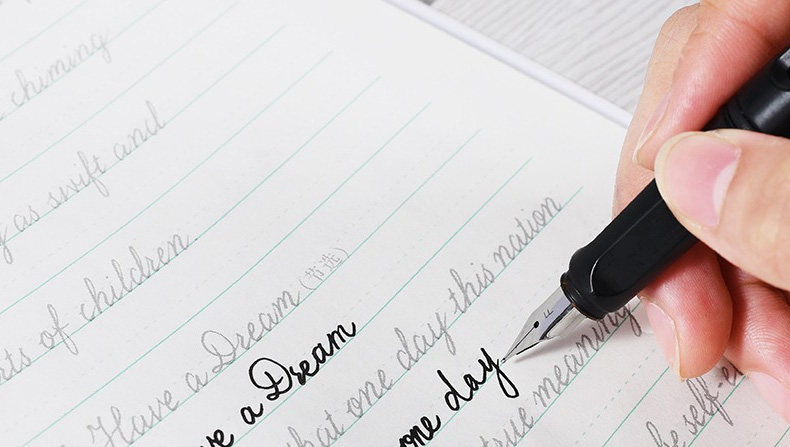 chiming
as swift and
of children
Have a Dream (节选)
a Dream
what one day this nation
one day
true meaning
be self-e